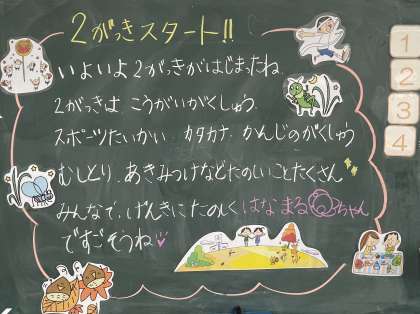 2がっきスタート!!
いよいよ2がっきがはじまったね。
2がっきは こうがいがくしゅう、
スポーツたいかい、カタカナ、かんじのがくしゅう
むしとり、あきみつけなどたのしいことたくさん
みんなで、げんきにたのしく はなまるちゃん
ですごそうね
1
2
3
4